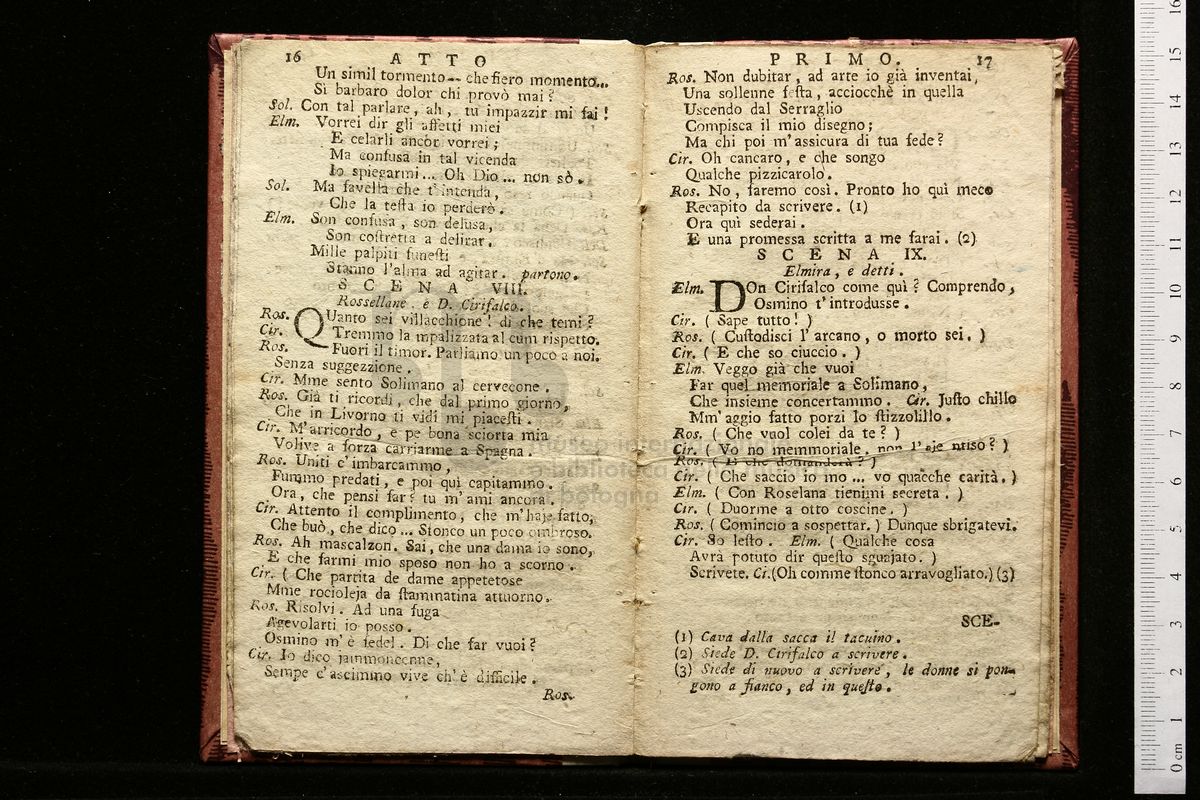 16 ATTO
Un simil tormento -- che fiero momento...
Sì barbaro dolor chi provò mai?
Sol. Con tal parlare, ah, tu impazzir mi fai!
Elm. Vorrei dir gli affetti miei
E celarli ancor vorrei;
Ma confusa in tal vicenda
Io spiegarmi... Oh Dio... non sò.
Sol. Ma favella che t'intenda,
Che la testa io perderò.
Elm. Son confusa, son delusa,
Son costretta a delirar.
Mille palpiti funesti
Stanno l'alma ad agitar. partono.
SCENA VIII.
Rossellane, e D. Cirifalco.
Ros. Quanto sei villacchione! di che temi?
Cir. Tremmo la mpalizzata al cum rispetto.
Ros. Fuori il timor. Parliamo un poco a noi.
Senza suggezzione.
Cir. Mme sento Solimano al cervecone.
Ros. Già ti ricordi, che dal primo giorno,
Che in Livorno ti vidi mi piacesti.
Cir. M'arricordo, e pe bona sciorta mia
Volive a forza carriarme a Spagna.
Ros. Uniti c'imbarcammo,
Fummo predati, e poi quì capitammo.
Ora, che pensi far? tu m'ami ancora?
Cir. Attento il complimento, che m'haje fatto,
Che buò, che dico... Stonco un poco ombroso.
Ros. Ah mascalzon. Sai, che una dama io sono,
E che farmi mio sposo non ho a scorno.
Cir. ( Che partita de dame appetetose
Mme rocioleja de stammatina attuorno.
Ros. Risolvi. Ad una fuga
Agevolarti io posso.
Osmino m'è fedel. Di che far vuoi?
Cir. Io dico jammoncenne,
Sempe c'ascimmo vive ch'è difficile.
Ros.
PRIMO. 17
Ros. Non dubitar, ad arte io già inventai,
Una sollenne festa, acciocchè in quella
Uscendo dal Serraglio
Compisca il mio disegno;
Ma chi poi m'assicura di tua fede?
Cir. Oh cancaro, e che songo
Qualche pizzicarolo.
Ros. No, faremo così. Pronto ho quì meco
Recapito da scrivere. (1)
Ora quì sederai.
E una promessa scritta a me farai. (2)
SCENA IX.
Elmira, e detti.
Elm. DOn Cirifalco come quì? Comprendo,
Osmino t'introdusse.
Cir. ( Sape tutto! )
Ros. ( Custodisci l'arcano, o morto sei. )
Cir. ( E che so ciuccio. )
Elm. Veggo già che vuoi
Far quel memoriale a Solimano,
Che insieme concertammo. Cir. Justo chillo
Mm'aggio fatto porzì lo stizzolillo.
Ros. ( Che vuol colei da te? )
Cir. ( Vo no memmoriale, non l'aje ntiso? )
Ros. ( E che domanderà? )
Cir. ( Che saccio io mo... vo quacche carità. )
Elm. ( Con Roselana tienimi secreta. )
Cir. ( Duorme a otto coscine. )
Ros. ( Comincio a sospettar. ) Dunque sbrigatevi.
Cir. So lesto. Elm. ( Qualche cosa
Avrà potuto dir questo sguajato. )
Scrivete. Ci. (Oh comme stonco arravogliato.) (3)
SCE-
(1) Cava dalla sacca il tacuino.
(2) Siede D. Cirifalco a scrivere.
(3) Siede di nuovo a scrivere, le donne si pon-
gono a fianco, ed in questo.
museo internazionale
e biblioteca
di bologna
0 cm 1 2 3 4 5 6 7 8 9 10 11 12 13 14 15 16